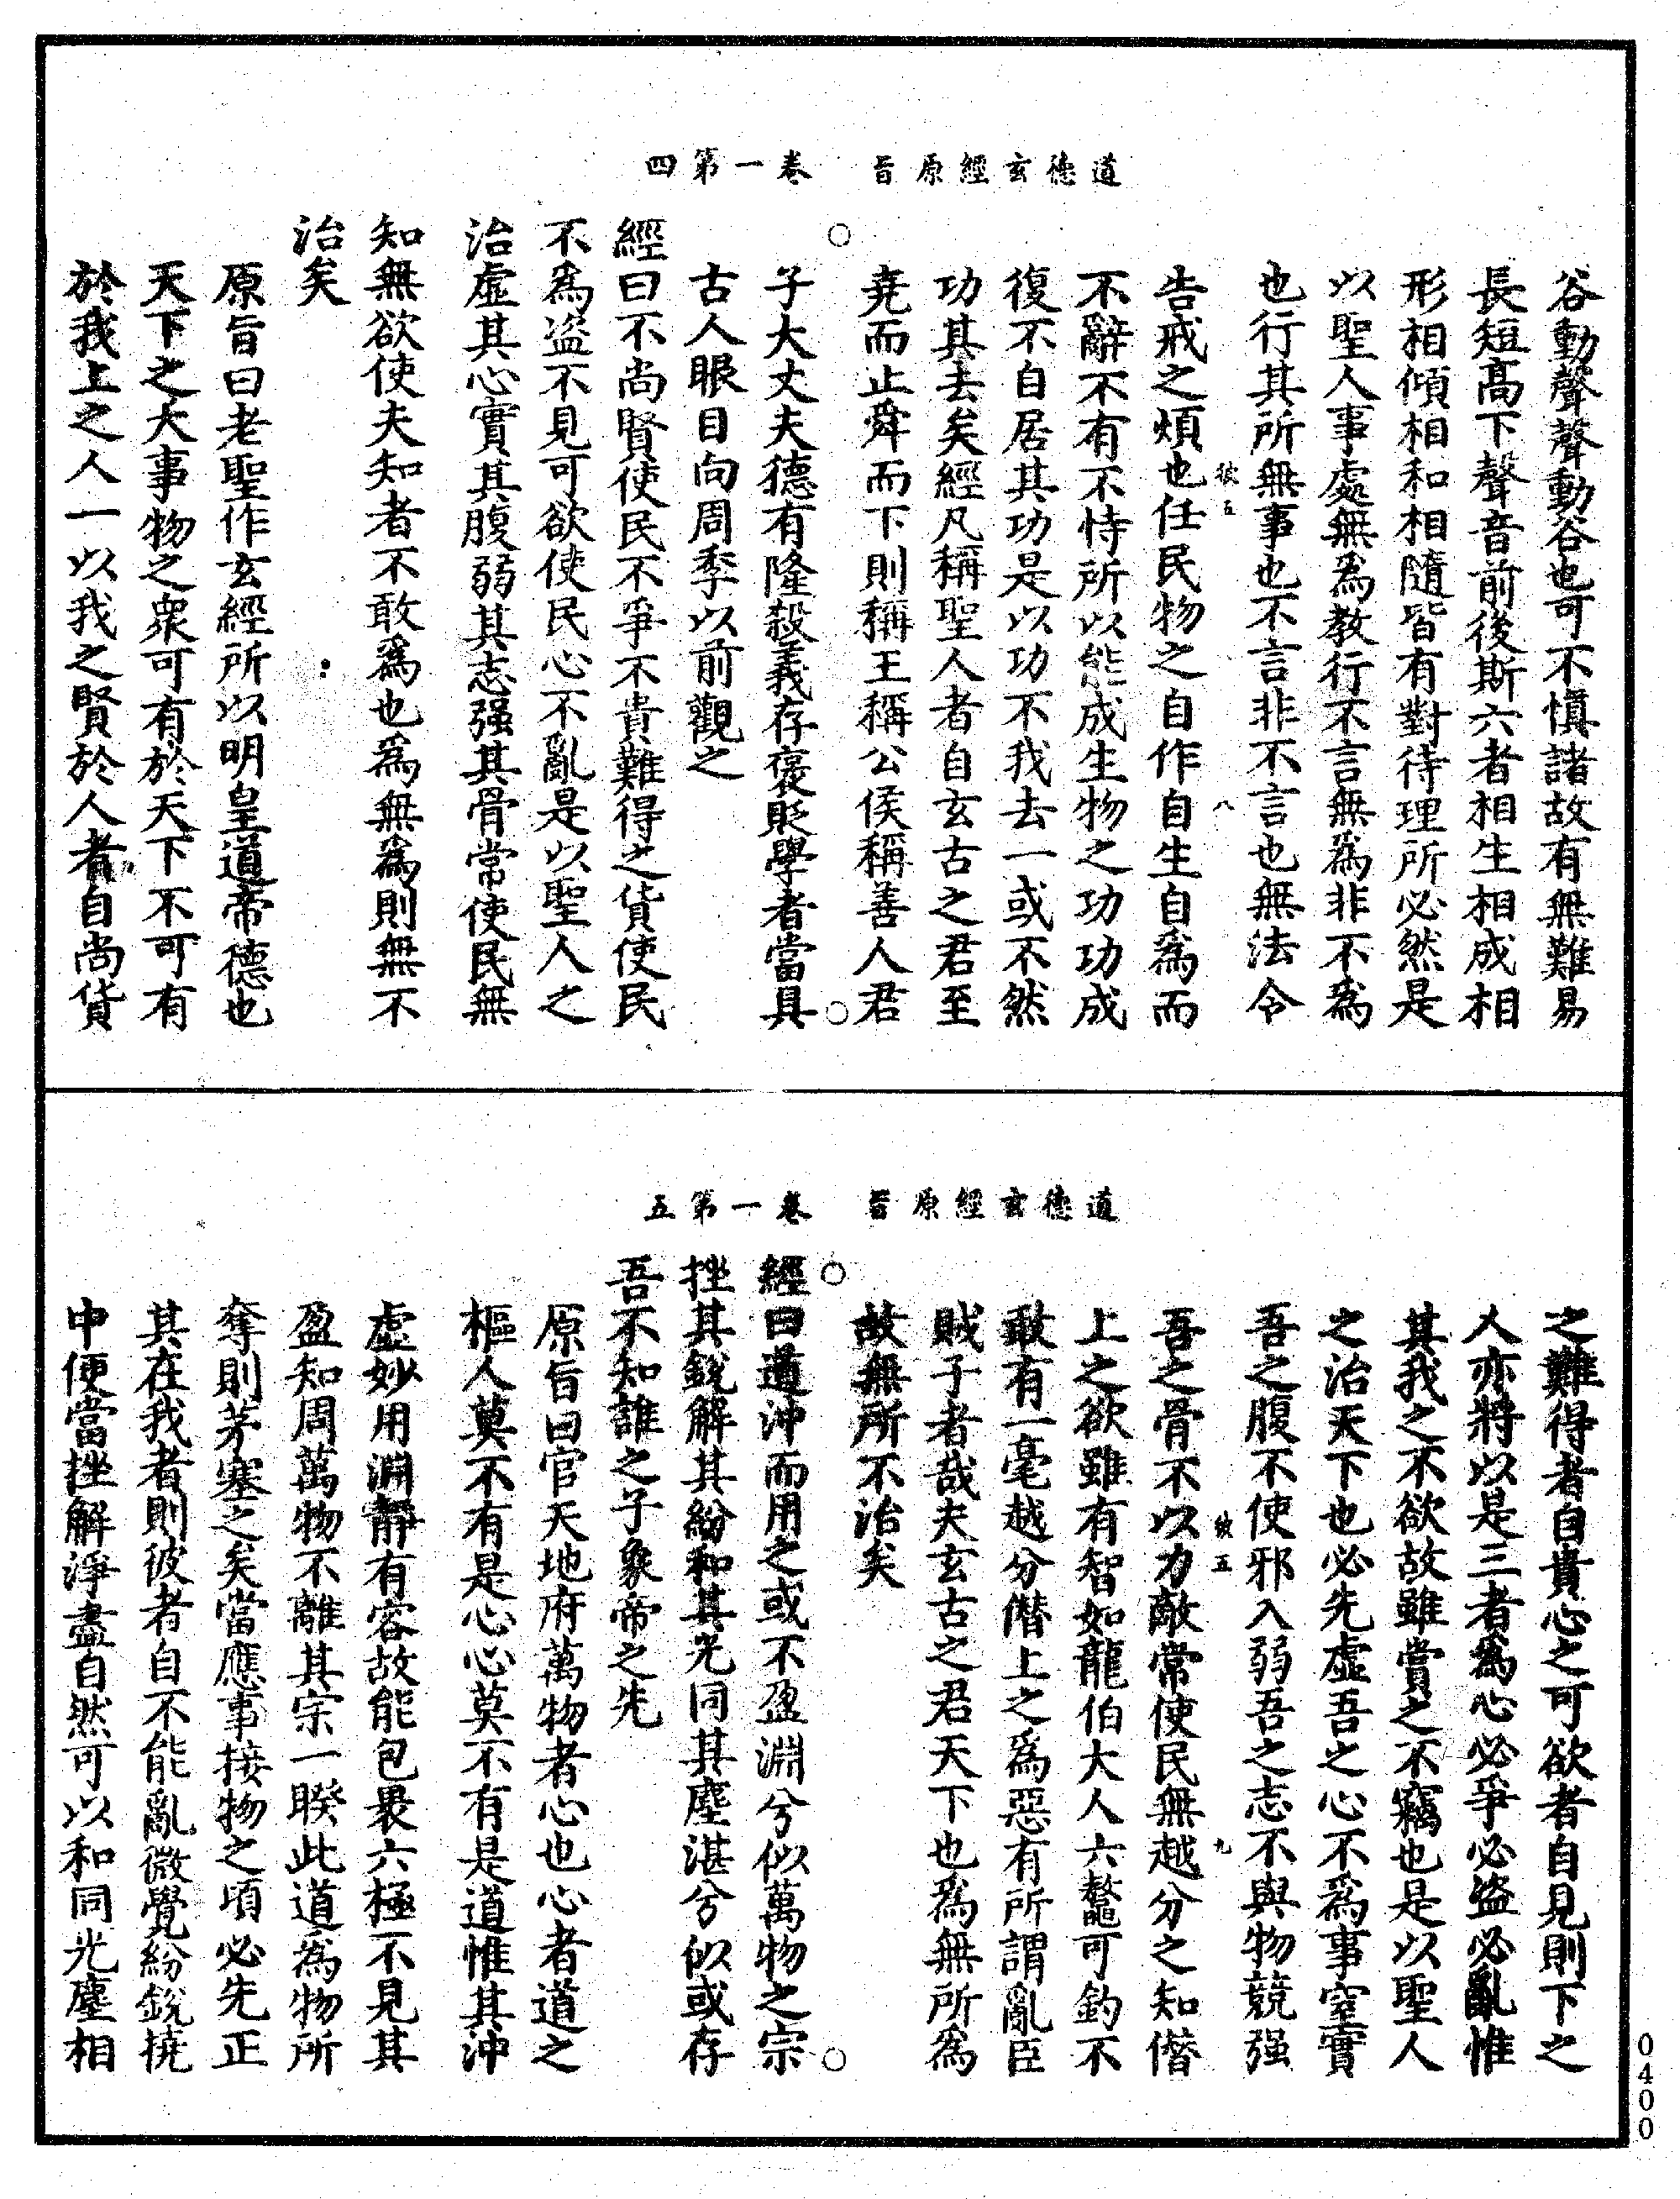 道德玄經原旨　卷一第四
谷動聲聲動谷也可不慎諸故有無難易
長短高下聲音前後斯六者相生相成相
形相傾相和相隨皆有對待理所必然是
以聖人事處無為教行不言無為非不為
也行其所無事也不言非不言也無法令
彼五　八
告戒之煩也任民物之自作自生自為而
不辭不有不恃所以能成生物之功功成
復不自居其功是以功不我去一或不然
功其去矣經凡稱聖人者自玄古之君至
堯而止舜而下則稱王稱公侯稱善人君
子大丈夫德有隆殺義存褒貶學者當具
古人眼目向周季以前觀之
經曰不尚賢使民不爭不貴難得之貨使民
不為盜不見可欲使民心不亂是以聖人之
治虛其心實其腹弱其志强其骨常使民無
知無欲使夫知者不敢為也為無為則無不
治矣
原旨曰老聖作玄經所以明皇道帝德也
天下之大事物之衆可有於天下不可有
於我上之人一以我之賢於人者自尚貨
道德玄經原旨　卷一第五
之難得者自貴心之可欲者自見則下之
人亦將以是三者為心必爭必盜必亂惟
其我之不欲故雖賞之不竊也是以聖人
之治天下也必先虛吾之心不為事窒實
吾之腹不使邪入弱吾之志不與物競强
彼五　九
吾之骨不以力敵常使民無越分之知僭
上之欲雖有智如龍伯大人六鼇可釣不
敢有一毫越分僭上之為惡有所謂亂臣
賊子者哉夫玄古之君天下也為無所為
故無所不治矣
經曰道沖而用之或不盈淵兮似萬物之宗
挫其銳解其紛和其光同其塵湛兮似或存
吾不知誰之子象帝之先
原旨曰官天地府萬物者心也心者道之
樞人莫不有是心心莫不有是道惟其沖
虛妙用淵靜有容故能包裹六極不見其
盈知周萬物不離其宗一睽此道為物所
奪則茅塞之矣當應事接物之頃必先正
其在我者則彼者自不能亂微覺紛銳撓
中便當挫解淨盡自然可以和同光塵相
0400